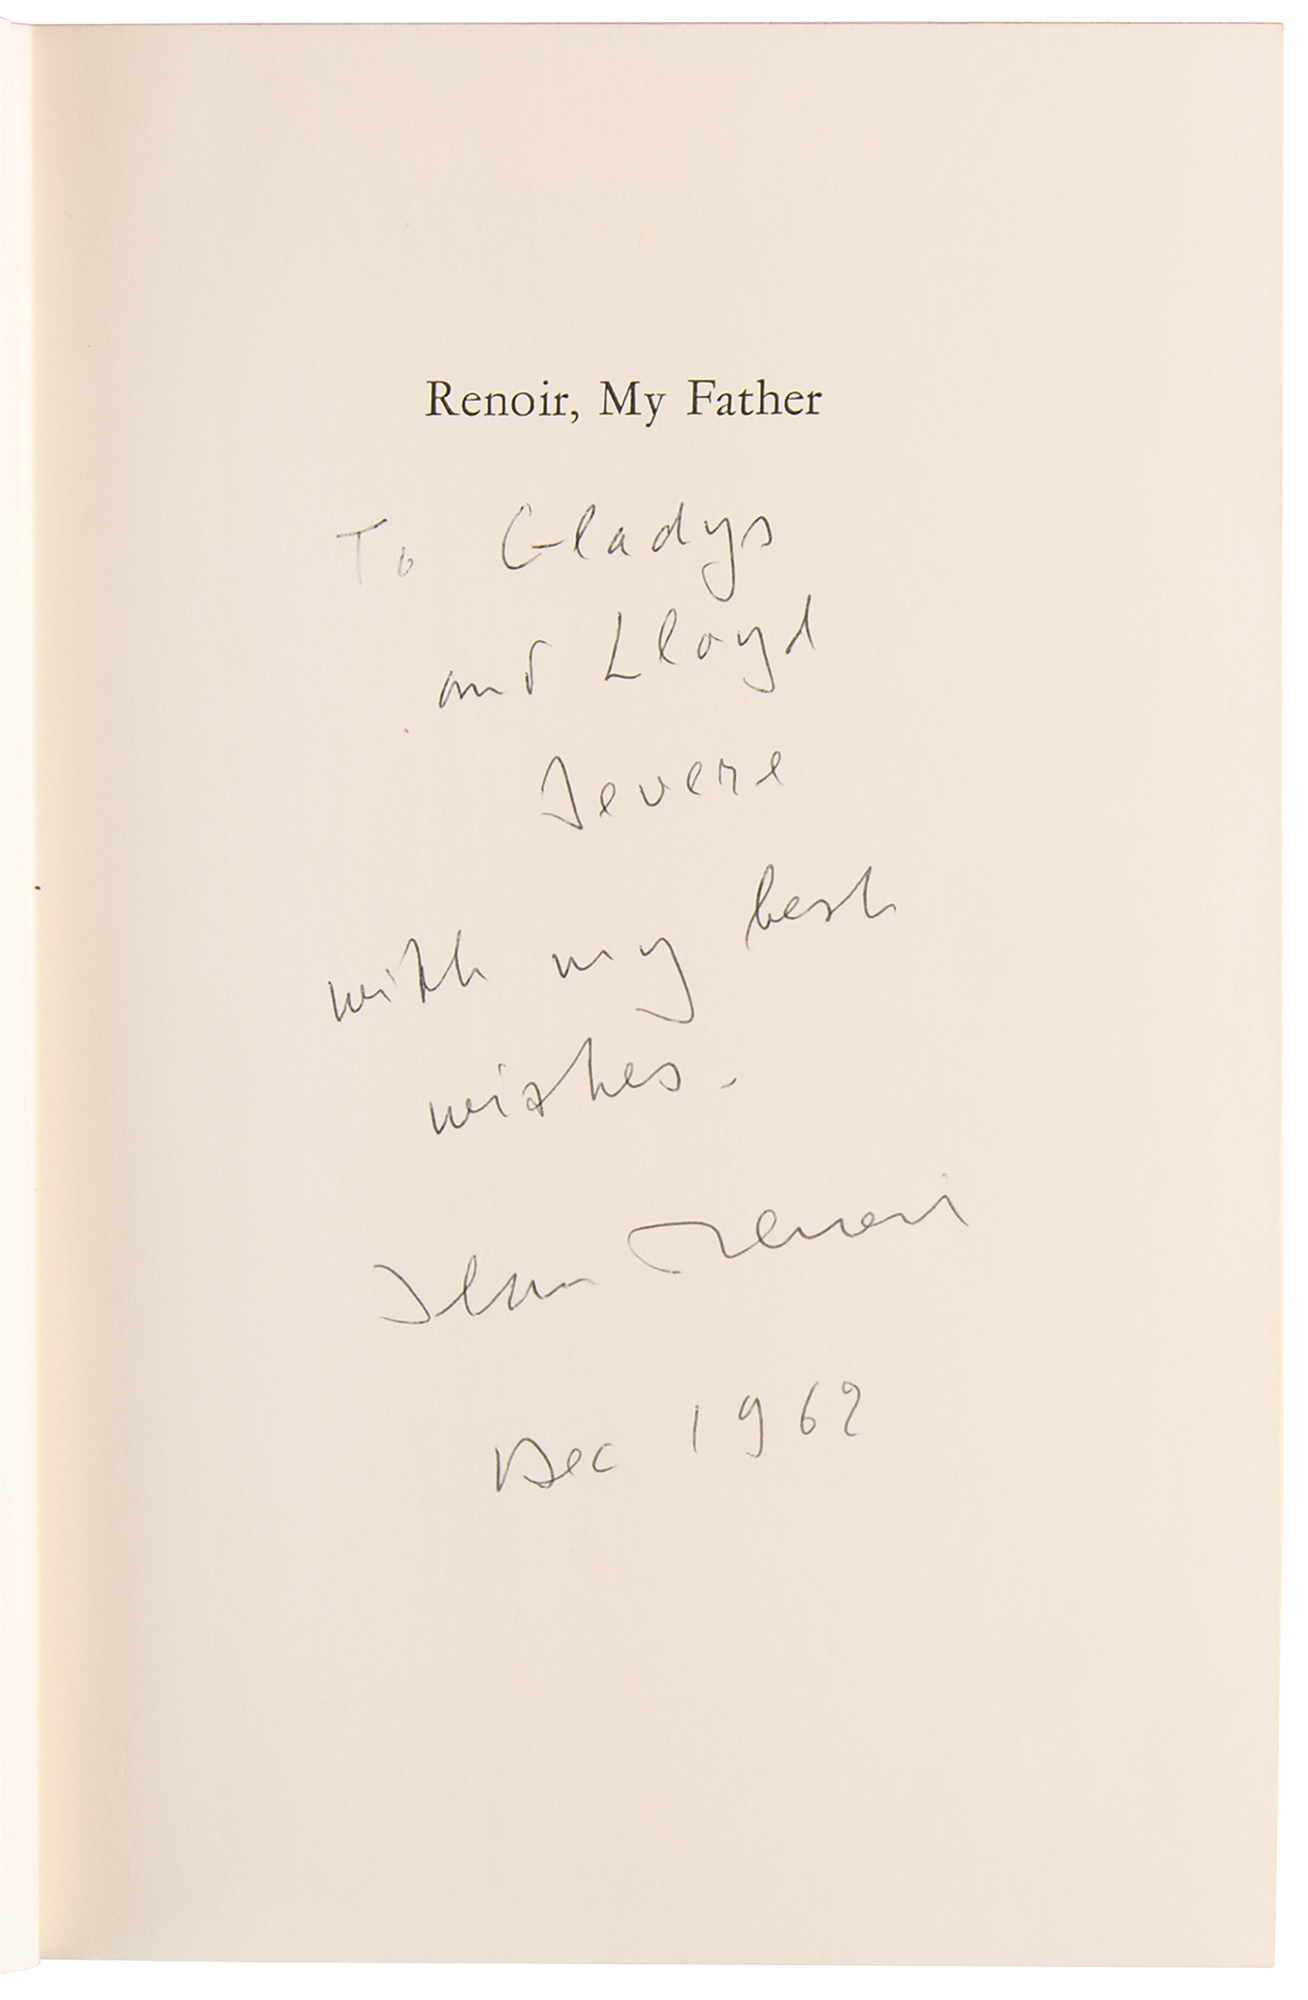 Renoir, My Father
To Gladys
and Lloyd
Severe
with my best
wishes.
Jean Renoir
Dec 1962